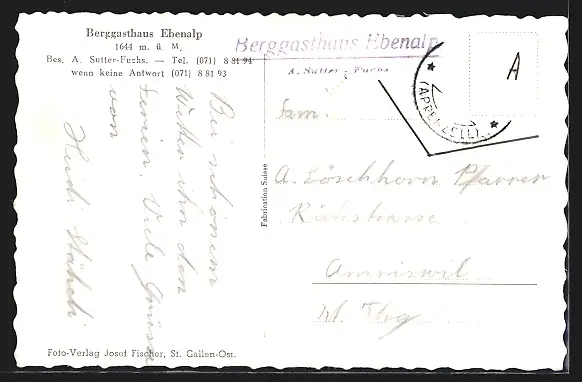 Berggasthaus Ebenalp
1644 m. ü. M.
Bes. A. Sutter-Fuchs. — Tel. (071) 8 81 94
wenn keine Antwort (071) 8 81 93
Berggasthaus Ebenalp
A. Sutter-Fuchs
A
(APPENZELL)
Bei schönem
Wetter in den
Ferien. Viele Grüsse
von
Heidi Stäheli
Fabrikation Suisse
Fam.
A. Löschhorn Pfarrer
Amriswil
Kt. Thg
Foto-Verlag Josef Fischer, St. Gallen-Ost.